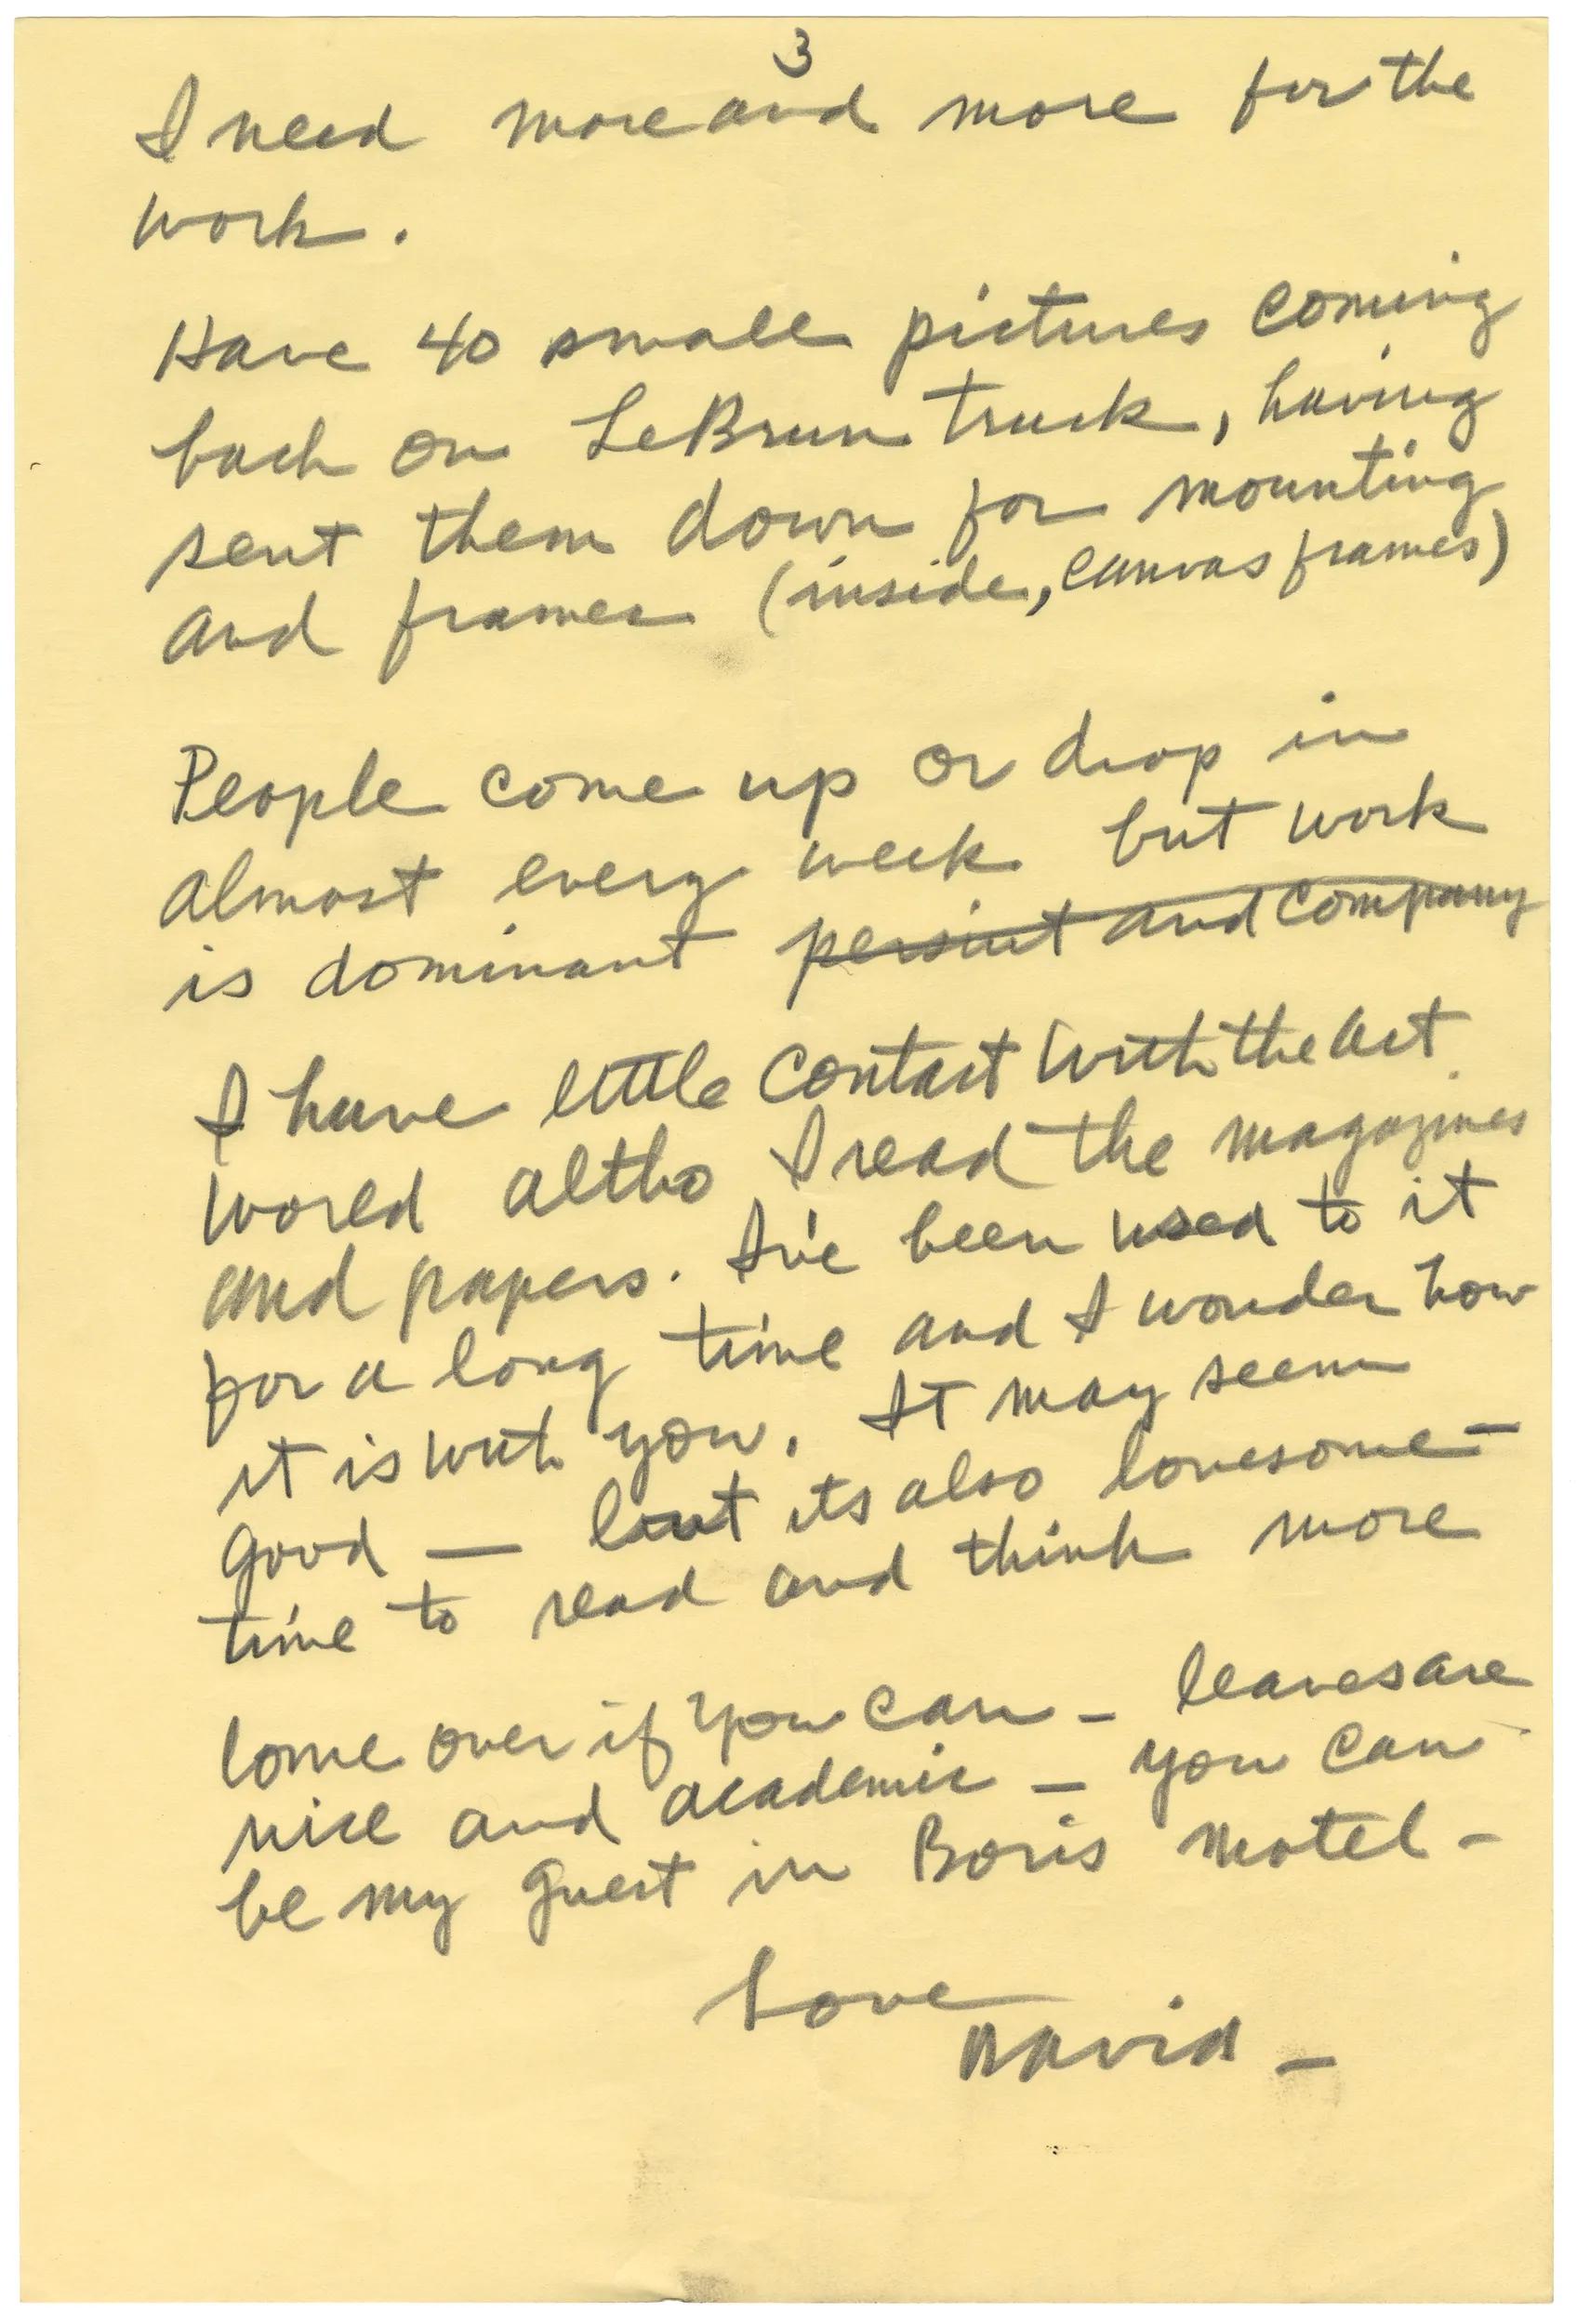 3
I need more and more for the
work.
Have 40 small pictures coming
back on LeBrun truck, having
sent them down for mounting
and frames (inside, canvas frames)
People come up or drop in
almost every week but work
is dominant persist and company
I have little contact with the art
world altho I read the magazines
and papers. I've been used to it
for a long time and I wonder how
it is with you. It may seem
good — but its also lonesome —
time to read and think more
Come over if you can - leaves are
nice and academic - you can
be my guest in Boris motel -
Love
David -